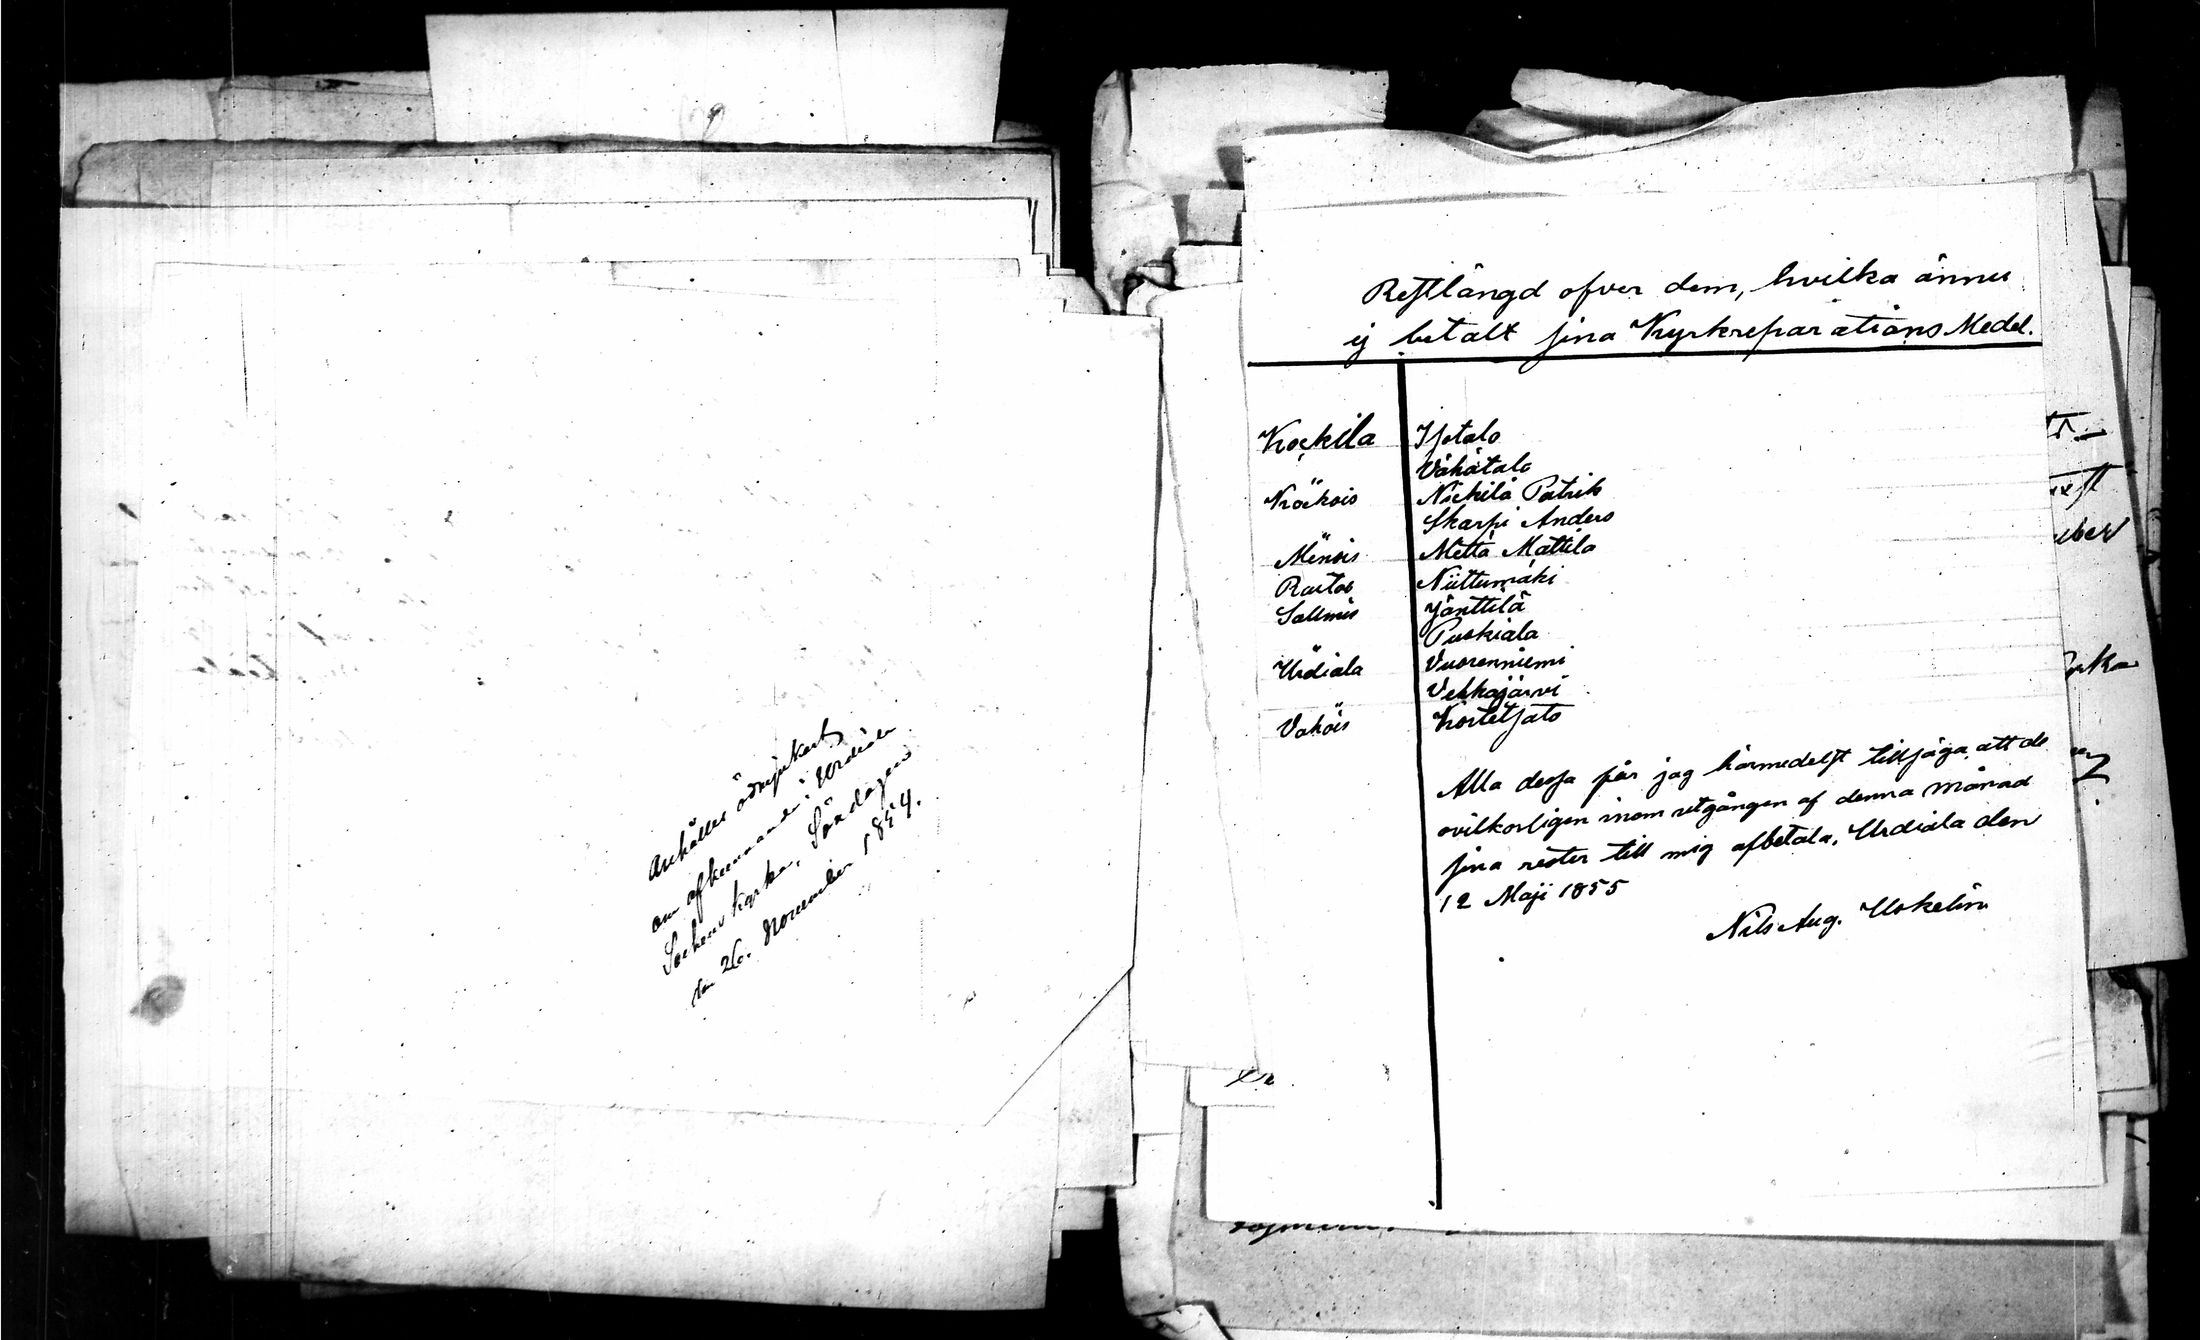 Anhålles ödmjukast
om afkunnande i Urdiala
Sockens kyrka, Söndagen
den 26. November 1854.
Restlängd öfver dem, hvilka ännu
ej betalt sina Kyrkreparations Medel.
Kockila Isotalo
Vähätalo
Kräkois Nickilä Patrik
Skarpi Anders
Menois Mettä Mattila
Rautas Niittumäki
Sallmis Jänttilä
Puskiala
Urdiala Vuorenniemi
Vehkajärvi
Vahois Kortetsato
Alla dessa får jag härmedelst tillsäga, att de
ovilkorligen inom utgången af denna månad
sina rester till mig afbetala. Urdiala den
12 Maji 1855
Nils Aug. Uskelin